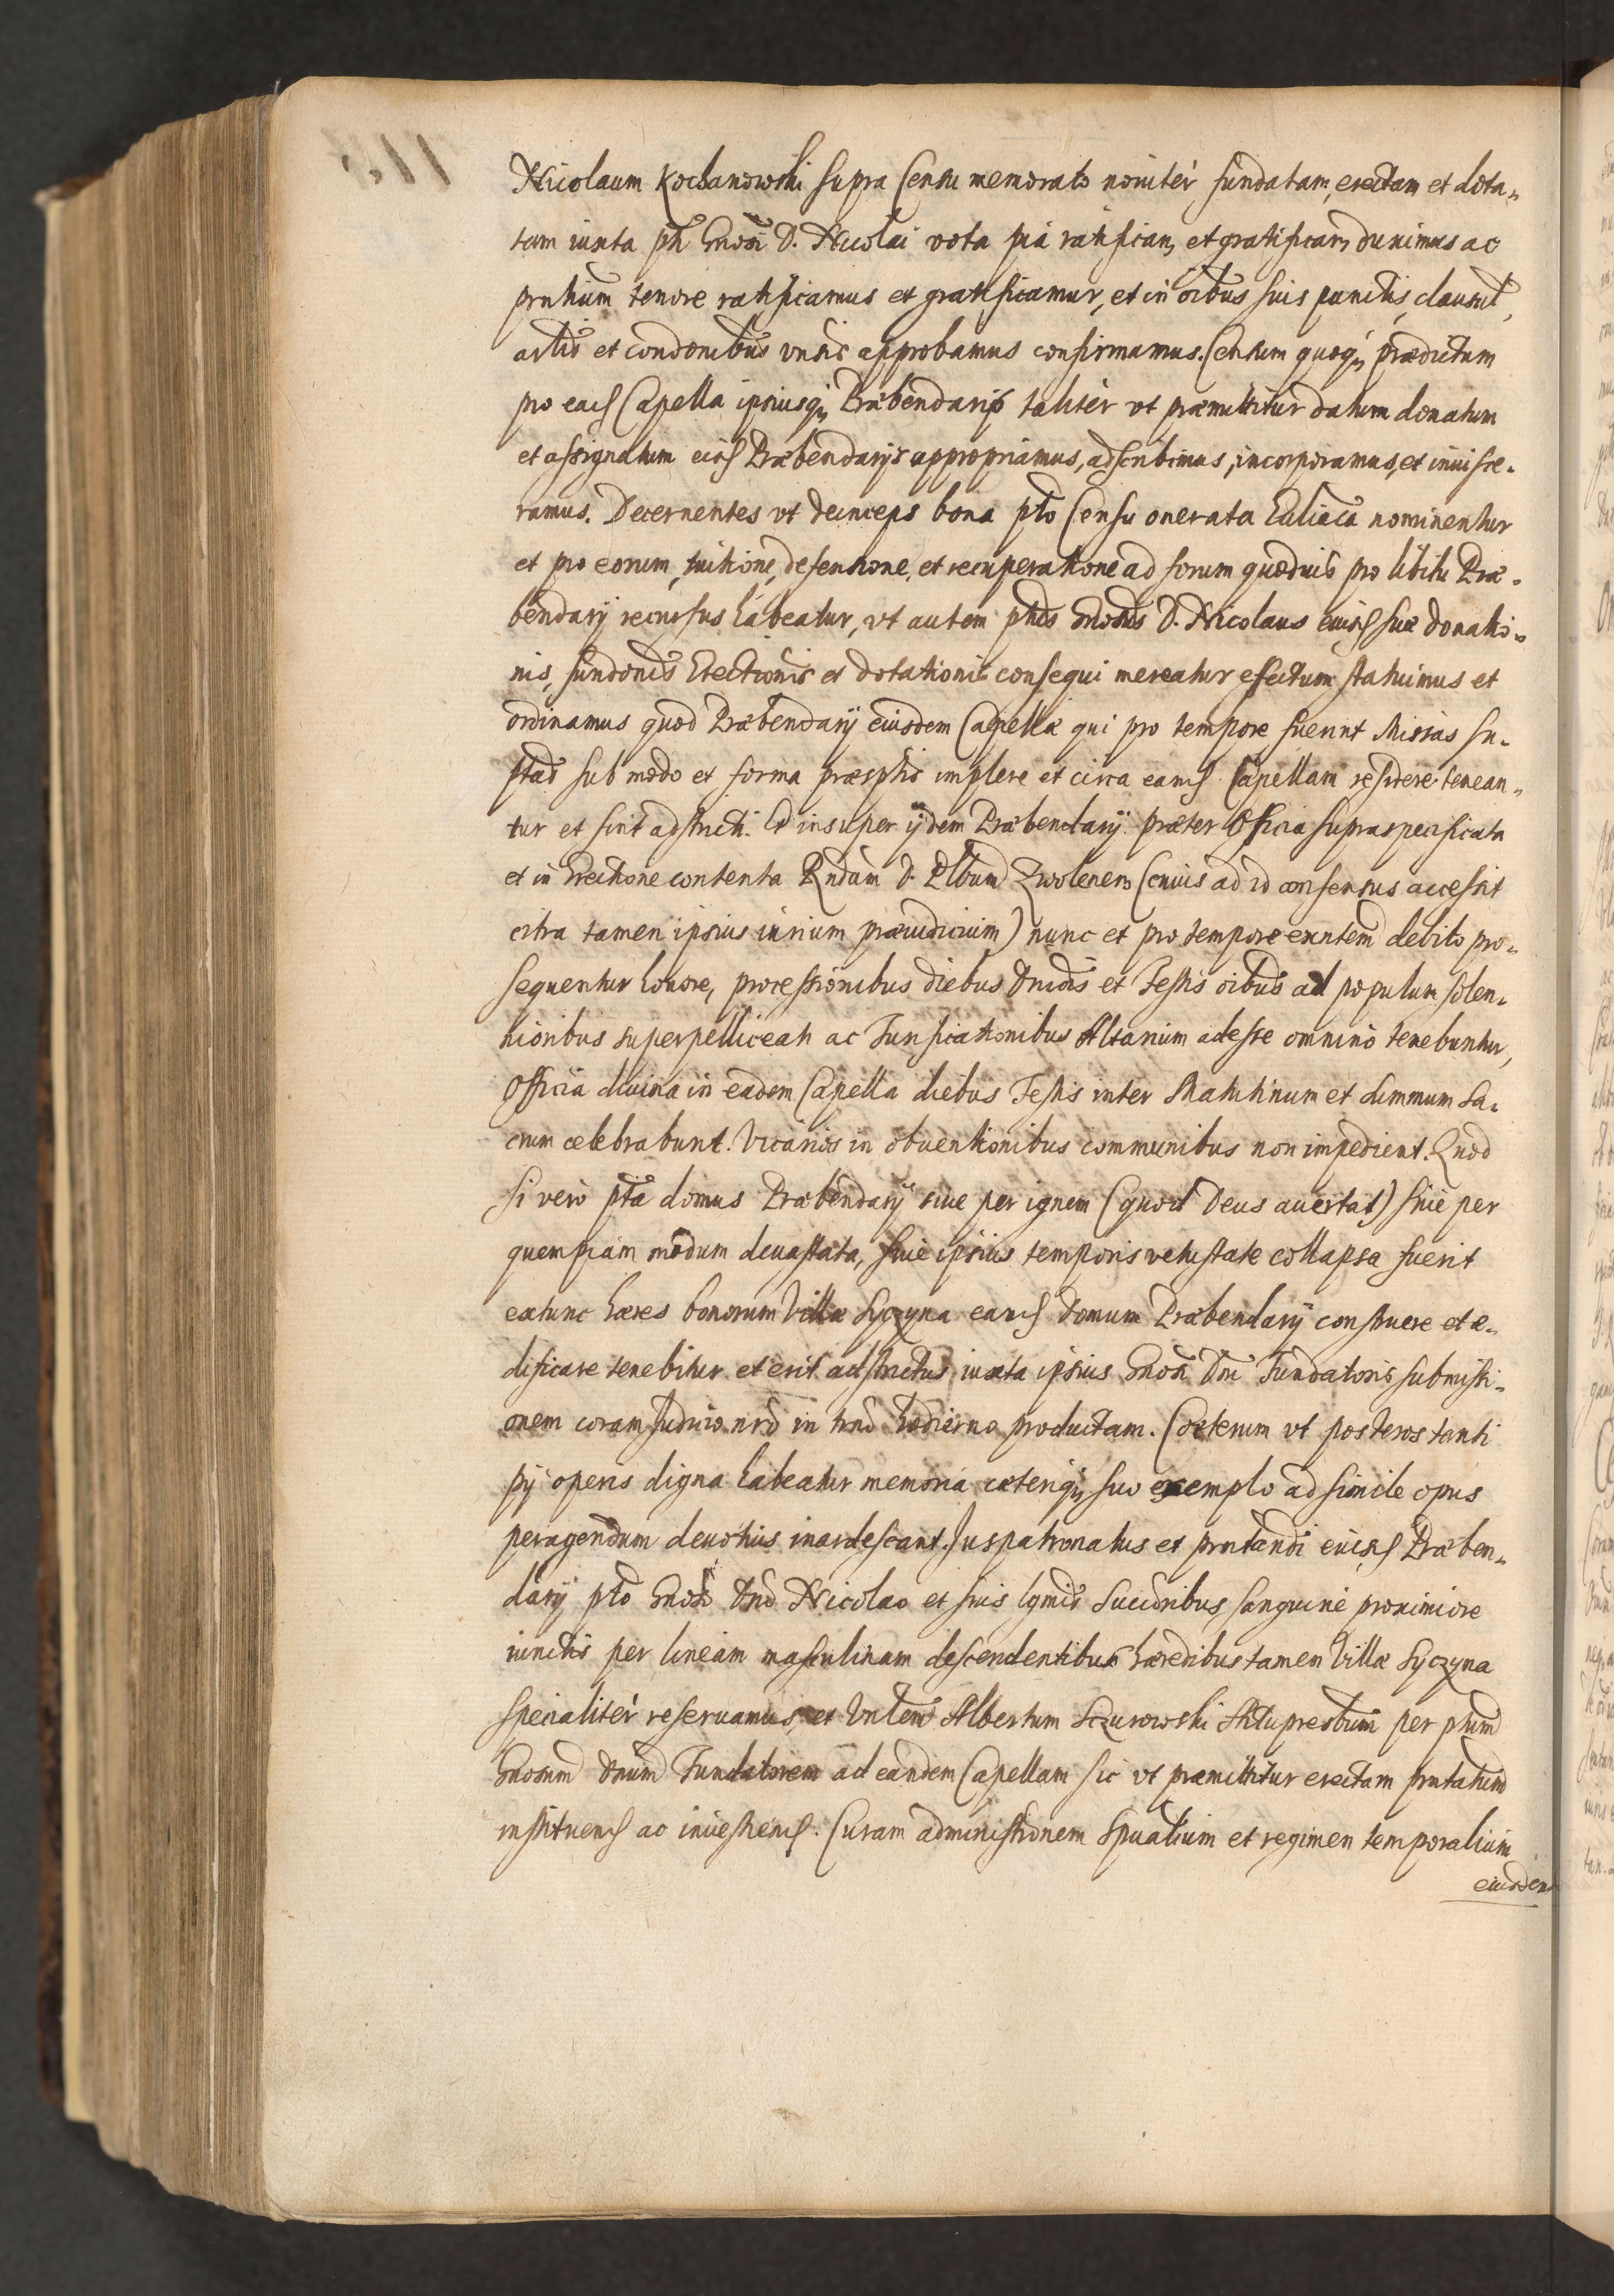 Nicolaum Kochanowski supra Censu memorato noviter fundatam, erectam et dota-
tam iuxta pti Gnosi D. Nicolai vota pia ratifican, et gratifican, duximus ac
prntium tenore ratificamus et gratificamur, et in oibus suis punctis, clausul,
artlis et condonibus vnsis approbamus confirmamus. Censum quoq, prædictum
pro ead Capella ipsiusq, Præbendarijs taliter vt præmittitur datum donatum
et assignatum eisd Præbendarijs appropriamus, adscribimus, incorporamus, et inuisce-
ramus. Decernentes vt deinceps bona pto Censu onerata Ecliaca nominentur
et pro eorum, tuitione, defensione, et recuperatione ad forum quoduis pro libitu Præ-
bendarij recursus habeatur, vt autem ptus Gnosus D. Nicolaus euisd suæ donatio-
nis, fundonis Erectionis et dotationis consequi mereatur effectum statuimus et
ordinamus quod Præbendarij eiusdem Capellæ qui pro tempore fuerint Missas su-
ptas sub modo et forma præsptis implere et circa eamd Capellam residere tenean-
tur et sint adstricti. Et insuper ijdem Præbendarij præter Officia supraspecificata
et in Erectione contenta Rndum D. Plbum Zwolenen (cuius ad id consensus accessit
citra tamen ipsius iurium præiudicium) nunc et pro tempore exntem debito pro-
sequentur honore, processionibus diebus Dnicis et Festis oibus ad populum solen-
nioribus superpelliceati ac Turificationibus Altarium adesse omnino tenebuntur,
Officia diuina in eadem Capella diebus Festis inter Matutinum et summum Sa-
crum celebrabunt. Vicarios in obuentionibus communibus non impedient. Quod
si vero pta domus Præbendarij siue per ignem (quod Deus auertat) siue per
quempiam modum deuastata, siue ipsius temporis vetustate collapsa fuerit
extunc hæres bonorum Villæ Syczyna eamd domum Præbendarij construere et æ-
dificare tenebitur et erit adstrictus iuxta ipsius Gnosi Dni Fundatoris submissi-
onem coram Judicio nro in trno hodierno productam. Cæterum vt posteros tanti
pij operis digna habeatur memoria cæteriq, suo exemplo ad simile opus
peragendum deuotius inardescant. Juspatronatus et prntandi euisd Præben-
darij pto Gnoso Dno Nicolao et suis lgmis Succoribus sanguine proximiore
iunctis per lineam masculinam descendentibus hæredibus tamen Villæ Syczyna
specialiter reseruamus, et Vnlem Albertum Sczurowski Altuprestum per ptum
Gnosum Dnum Fundatorem ad eandem Capellam sic vt præmittitur erectam prntatum
instituend ac inuestiend. Curam administronem Spualium et regimen temporalium
eiusdem